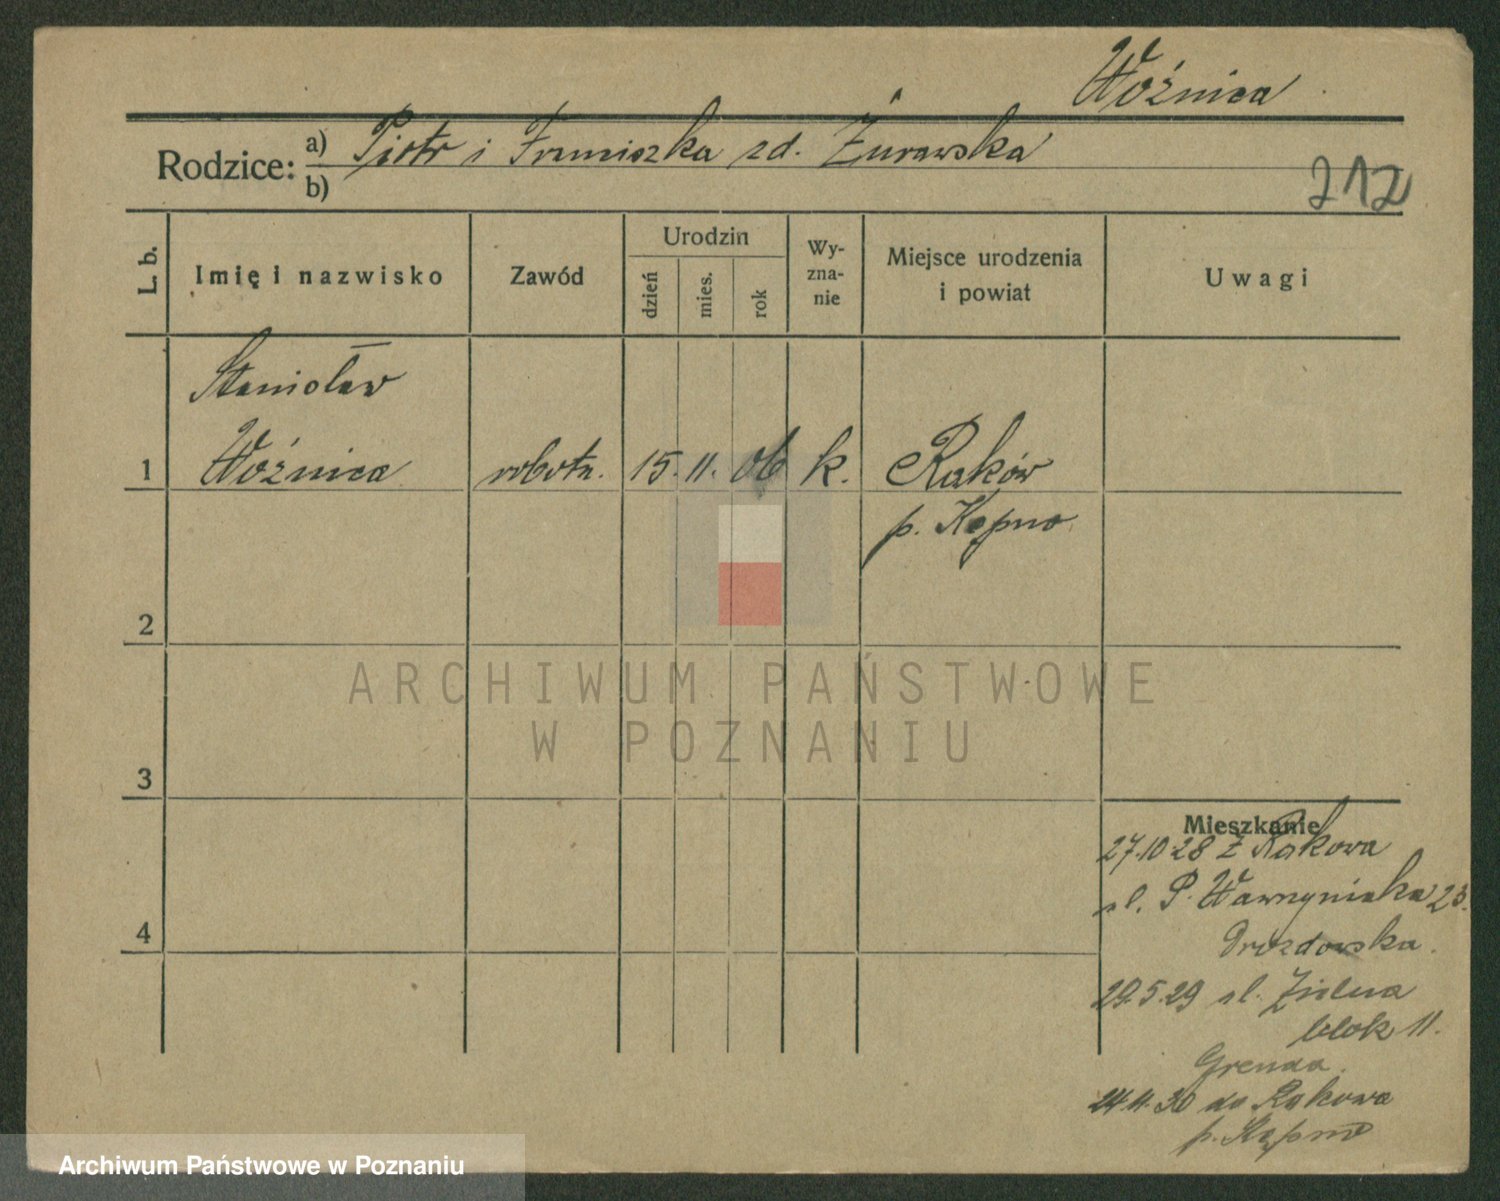 Woźnica
Rodzice: a) Piotr i Franciszka zd. Żurawska
b)
212
L. b. Imię i nazwisko Zawód Urodzin dzień mies. rok Wy-zna-nie Miejsce urodzenia i powiat Uwagi
Stanisław
1 Woźnica robotn. 15. 11. 06 k. Raków
p. Kępno
2
ARCHIWUM PAŃSTWOWE
W POZNANIU
3
Mieszkanie
27.10 28 z Rakowa
ul. P. Wawrzyniaka 23.
Drozdowska.
4
29.5.29 ul. Zielna
blok 11.
Grenda.
24.11.30 do Rakowa
p. Kępno
Archiwum Państwowe w Poznaniu